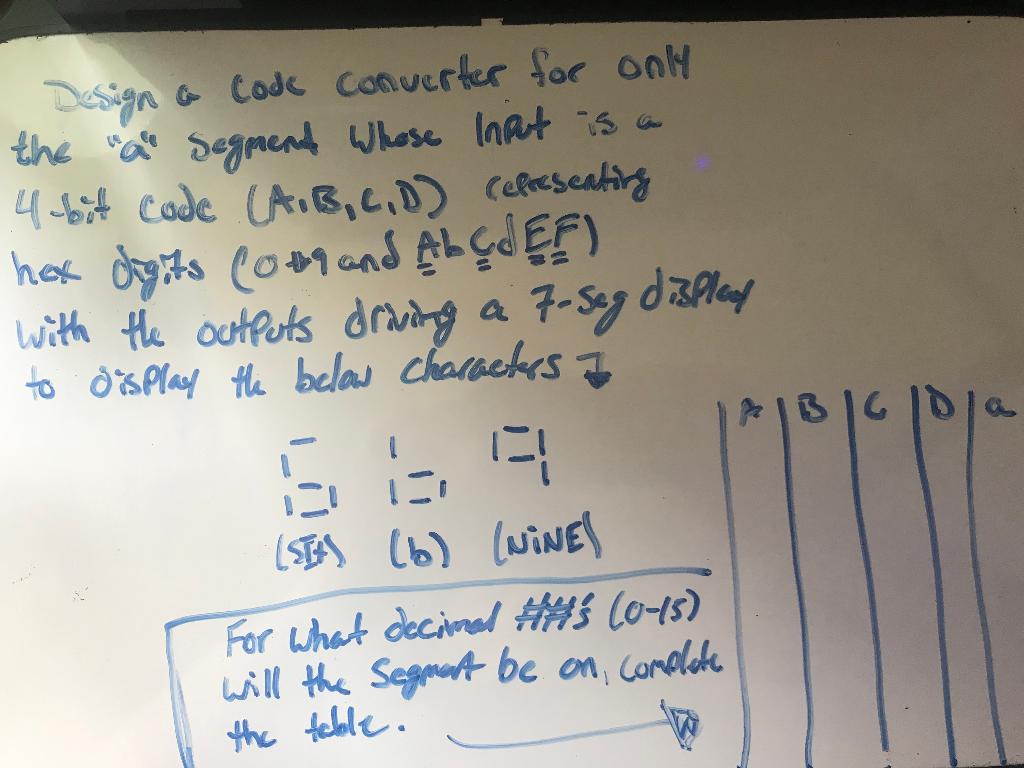 Design a code converter for only
the "a" segment whose input is a
4-bit code (A,B,C,D) representing
hex digits (0 to 9 and AbCdEF)
with the outputs driving a 7-seg display
to display the below characters
A B C D a
(SIX) (b) (NINE)
For what decimal ##'s (0-15)
will the segment be on, complete
the table.